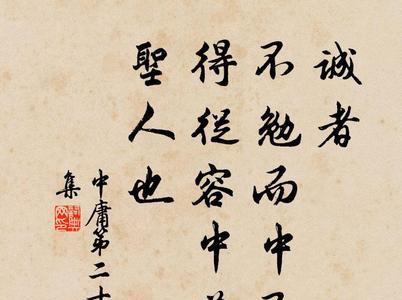 誠者
不勉而中
得從容中
聖人也
中庸第二十
集